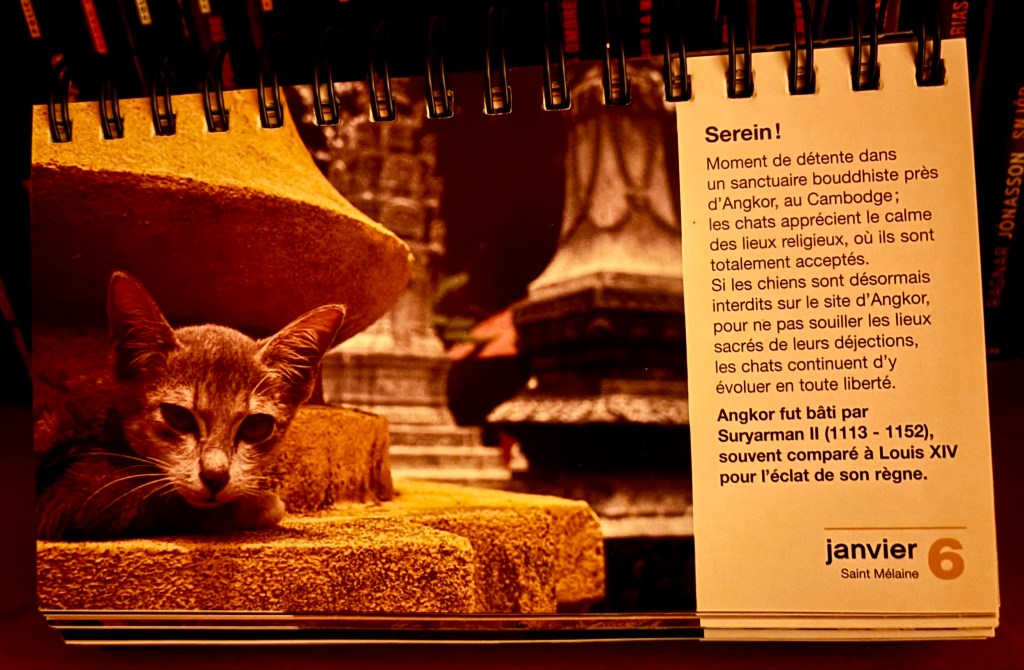 Serein !
Moment de détente dans
un sanctuaire bouddhiste près
d'Angkor, au Cambodge ;
les chats apprécient le calme
des lieux religieux, où ils sont
totalement acceptés.
Si les chiens sont désormais
interdits sur le site d'Angkor,
pour ne pas souiller les lieux
sacrés de leurs déjections,
les chats continuent d'y
évoluer en toute liberté.
Angkor fut bâti par
Suryarman II (1113 - 1152),
souvent comparé à Louis XIV
pour l'éclat de son règne.
janvier 6
Saint Mélaine
RAGNAR JONASSON